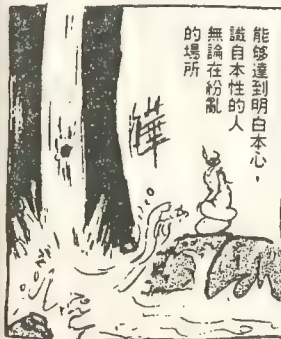 能够達到明白本心，
識自本性的人
無論在紛亂
的場所
嘩